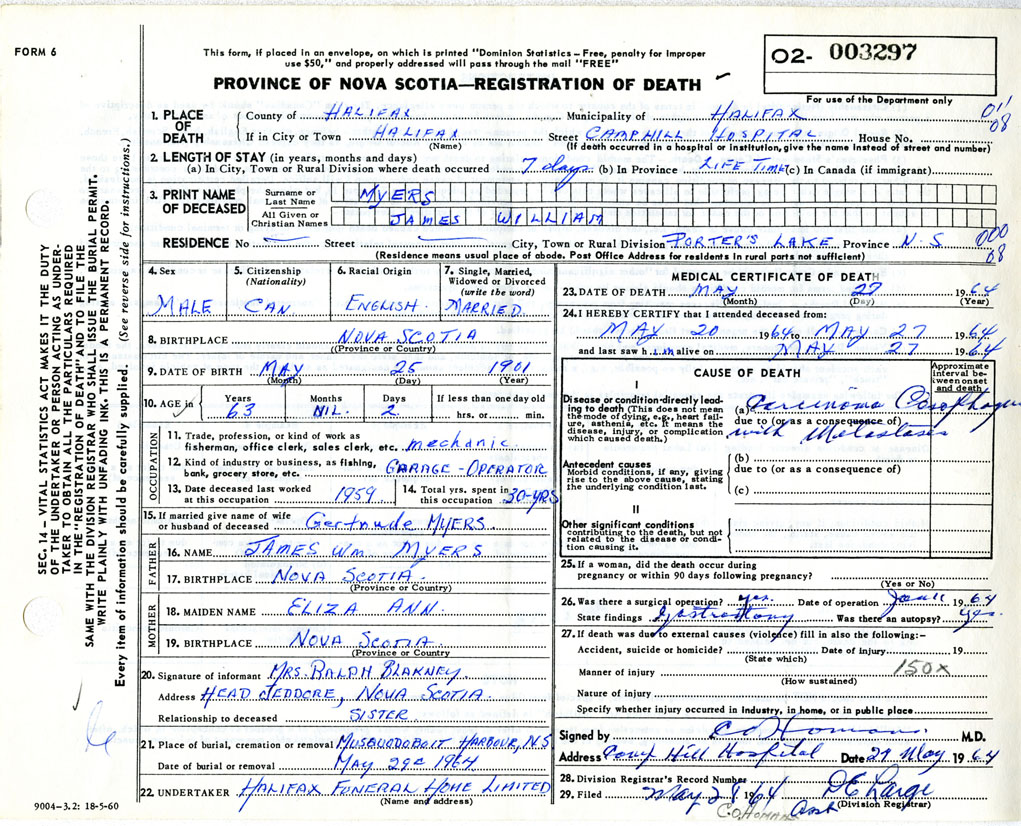 FORM 6
This form, if placed in an envelope, on which is printed "Dominion Statistics – Free, penalty for improper
use $50," and properly addressed will pass through the mail "FREE"
PROVINCE OF NOVA SCOTIA—REGISTRATION OF DEATH
O2- 003297
For use of the Department only
011
08
SEC. 14 – VITAL STATISTICS ACT MAKES IT THE DUTY
OF THE UNDERTAKER OR PERSON ACTING AS UNDER-
TAKER TO OBTAIN ALL THE PARTICULARS REQUIRED
IN THE "REGISTRATION OF DEATH" AND TO FILE THE
SAME WITH THE DIVISION REGISTRAR WHO SHALL ISSUE THE BURIAL PERMIT.
WRITE PLAINLY WITH UNFADING INK. THIS IS A PERMANENT RECORD.
Every item of information should be carefully supplied. (See reverse side for instructions.)
1. PLACE OF DEATH
County of HALIFAX Municipality of HALIFAX
If in City or Town HALIFAX Street CAMPHILL HOSPITAL House No.
(Name) (If death occurred in a hospital or institution, give the name instead of street and number)
2. LENGTH OF STAY (in years, months and days)
(a) In City, Town or Rural Division where death occurred 7 days (b) In Province LIFE TIME (c) In Canada (if immigrant)
3. PRINT NAME OF DECEASED
Surname or Last Name MYERS
All Given or Christian Names JAMES WILLIAM
RESIDENCE No Street City, Town or Rural Division PORTER'S LAKE Province N.S
000
08
(Residence means usual place of abode. Post Office Address for residents in rural parts not sufficient)
4. Sex MALE
5. Citizenship (Nationality) CAN
6. Racial Origin ENGLISH
7. Single, Married, Widowed or Divorced (write the word) MARRIED
8. BIRTHPLACE NOVA SCOTIA
(Province or Country)
9. DATE OF BIRTH MAY 25 1901
(Month) (Day) (Year)
10. AGE in Years 63 Months NIL. Days 2 If less than one day old hrs. or min.
OCCUPATION
11. Trade, profession, or kind of work as
fisherman, office clerk, sales clerk, etc. mechanic
12. Kind of industry or business, as fishing,
bank, grocery store, etc. GARAGE - OPERATOR
13. Date deceased last worked at this occupation 1959
14. Total yrs. spent in this occupation 30-YRS
15. If married give name of wife
or husband of deceased Gertrude MYERS
FATHER
16. NAME JAMES Wm MYERS
17. BIRTHPLACE NOVA SCOTIA
MOTHER
18. MAIDEN NAME ELIZA ANN
19. BIRTHPLACE NOVA SCOTIA
(Province or Country)
20. Signature of informant MRS. RALPH BLAKNEY
Address HEAD JEDDORE, NOVA SCOTIA
Relationship to deceased SISTER
21. Place of burial, cremation or removal MUSQUODOBOIT HARBOUR, N.S
Date of burial or removal MAY 29 1964
22. UNDERTAKER HALIFAX FUNERAL HOME LIMITED
(Name and address)
9004–3.2: 18-5-60
MEDICAL CERTIFICATE OF DEATH
23. DATE OF DEATH MAY 27 1964
(Month) (Day) (Year)
24. I HEREBY CERTIFY that I attended deceased from:
MAY 20 1964 to MAY 27 1964
and last saw h im alive on MAY 27 1964
CAUSE OF DEATH
Approximate interval between onset and death
I
Disease or condition-directly lead-
ing to death (This does not mean
the mode of dying, e.g., heart fail-
ure, asthenia, etc. It means the
disease, injury, or complication
which caused death.)
(a) Carcinoma Oesophagus
due to (or as a consequence of)
with Metastases
Antecedent causes
Morbid conditions, if any, giving
rise to the above cause, stating
the underlying condition last.
(b)
due to (or as a consequence of)
(c)
II
Other significant conditions
contributing to the death, but not
related to the disease or condi-
tion causing it.
25. If a woman, did the death occur during
pregnancy or within 90 days following pregnancy?
(Yes or No)
26. Was there a surgical operation? yes. Date of operation Jan 11 1964
State findings Gastrostomy Was there an autopsy? yes.
27. If death was due to external causes (violence) fill in also the following:–
Accident, suicide or homicide? Date of injury 19
(State which)
Manner of injury 150X
(How sustained)
Nature of injury
Specify whether injury occurred in industry, in home, or in public place
Signed by C O Homans M.D.
Address Camp Hill Hospital Date 29 May 1964
28. Division Registrar's Record Number
29. Filed May 29 1964 D E Large
(Division Registrar)
C.O. HOMANS Asst